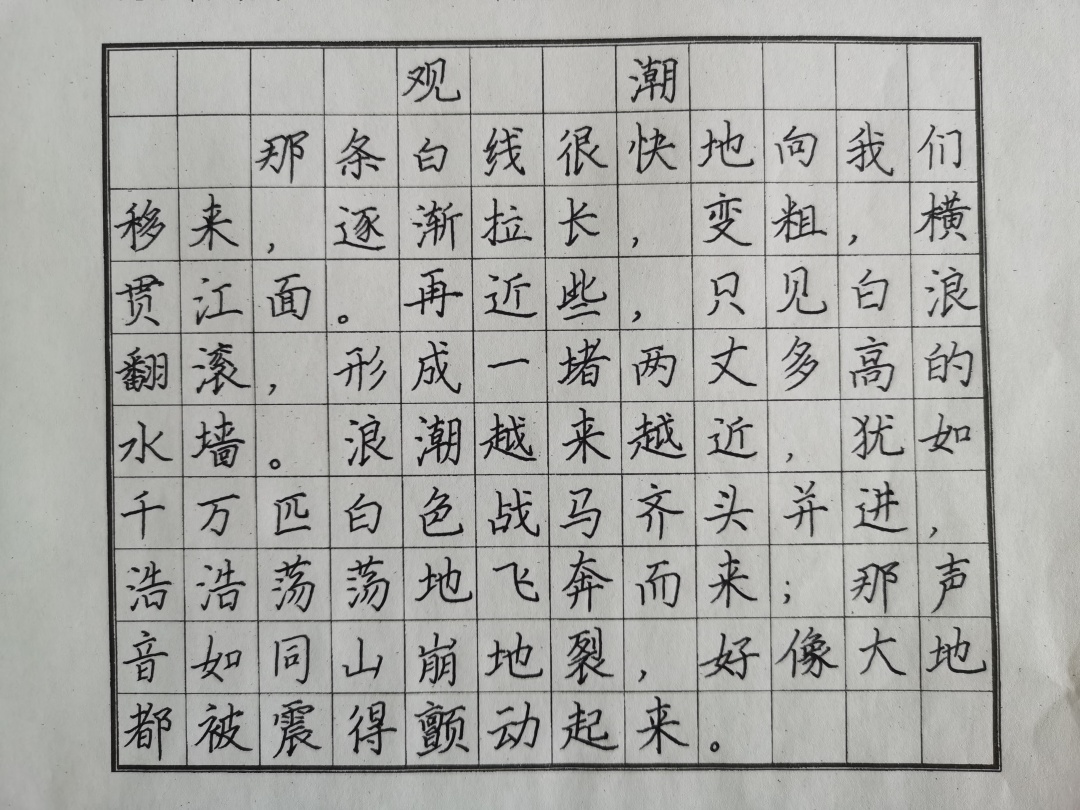 观潮
那条白线很快地向我们
移来，逐渐拉长，变粗，横
贯江面。再近些，只见白浪
翻滚，形成一堵两丈多高的
水墙。浪潮越来越近，犹如
千万匹白色战马齐头并进，
浩浩荡荡地飞奔而来；那声
音如同山崩地裂，好像大地
都被震得颤动起来。